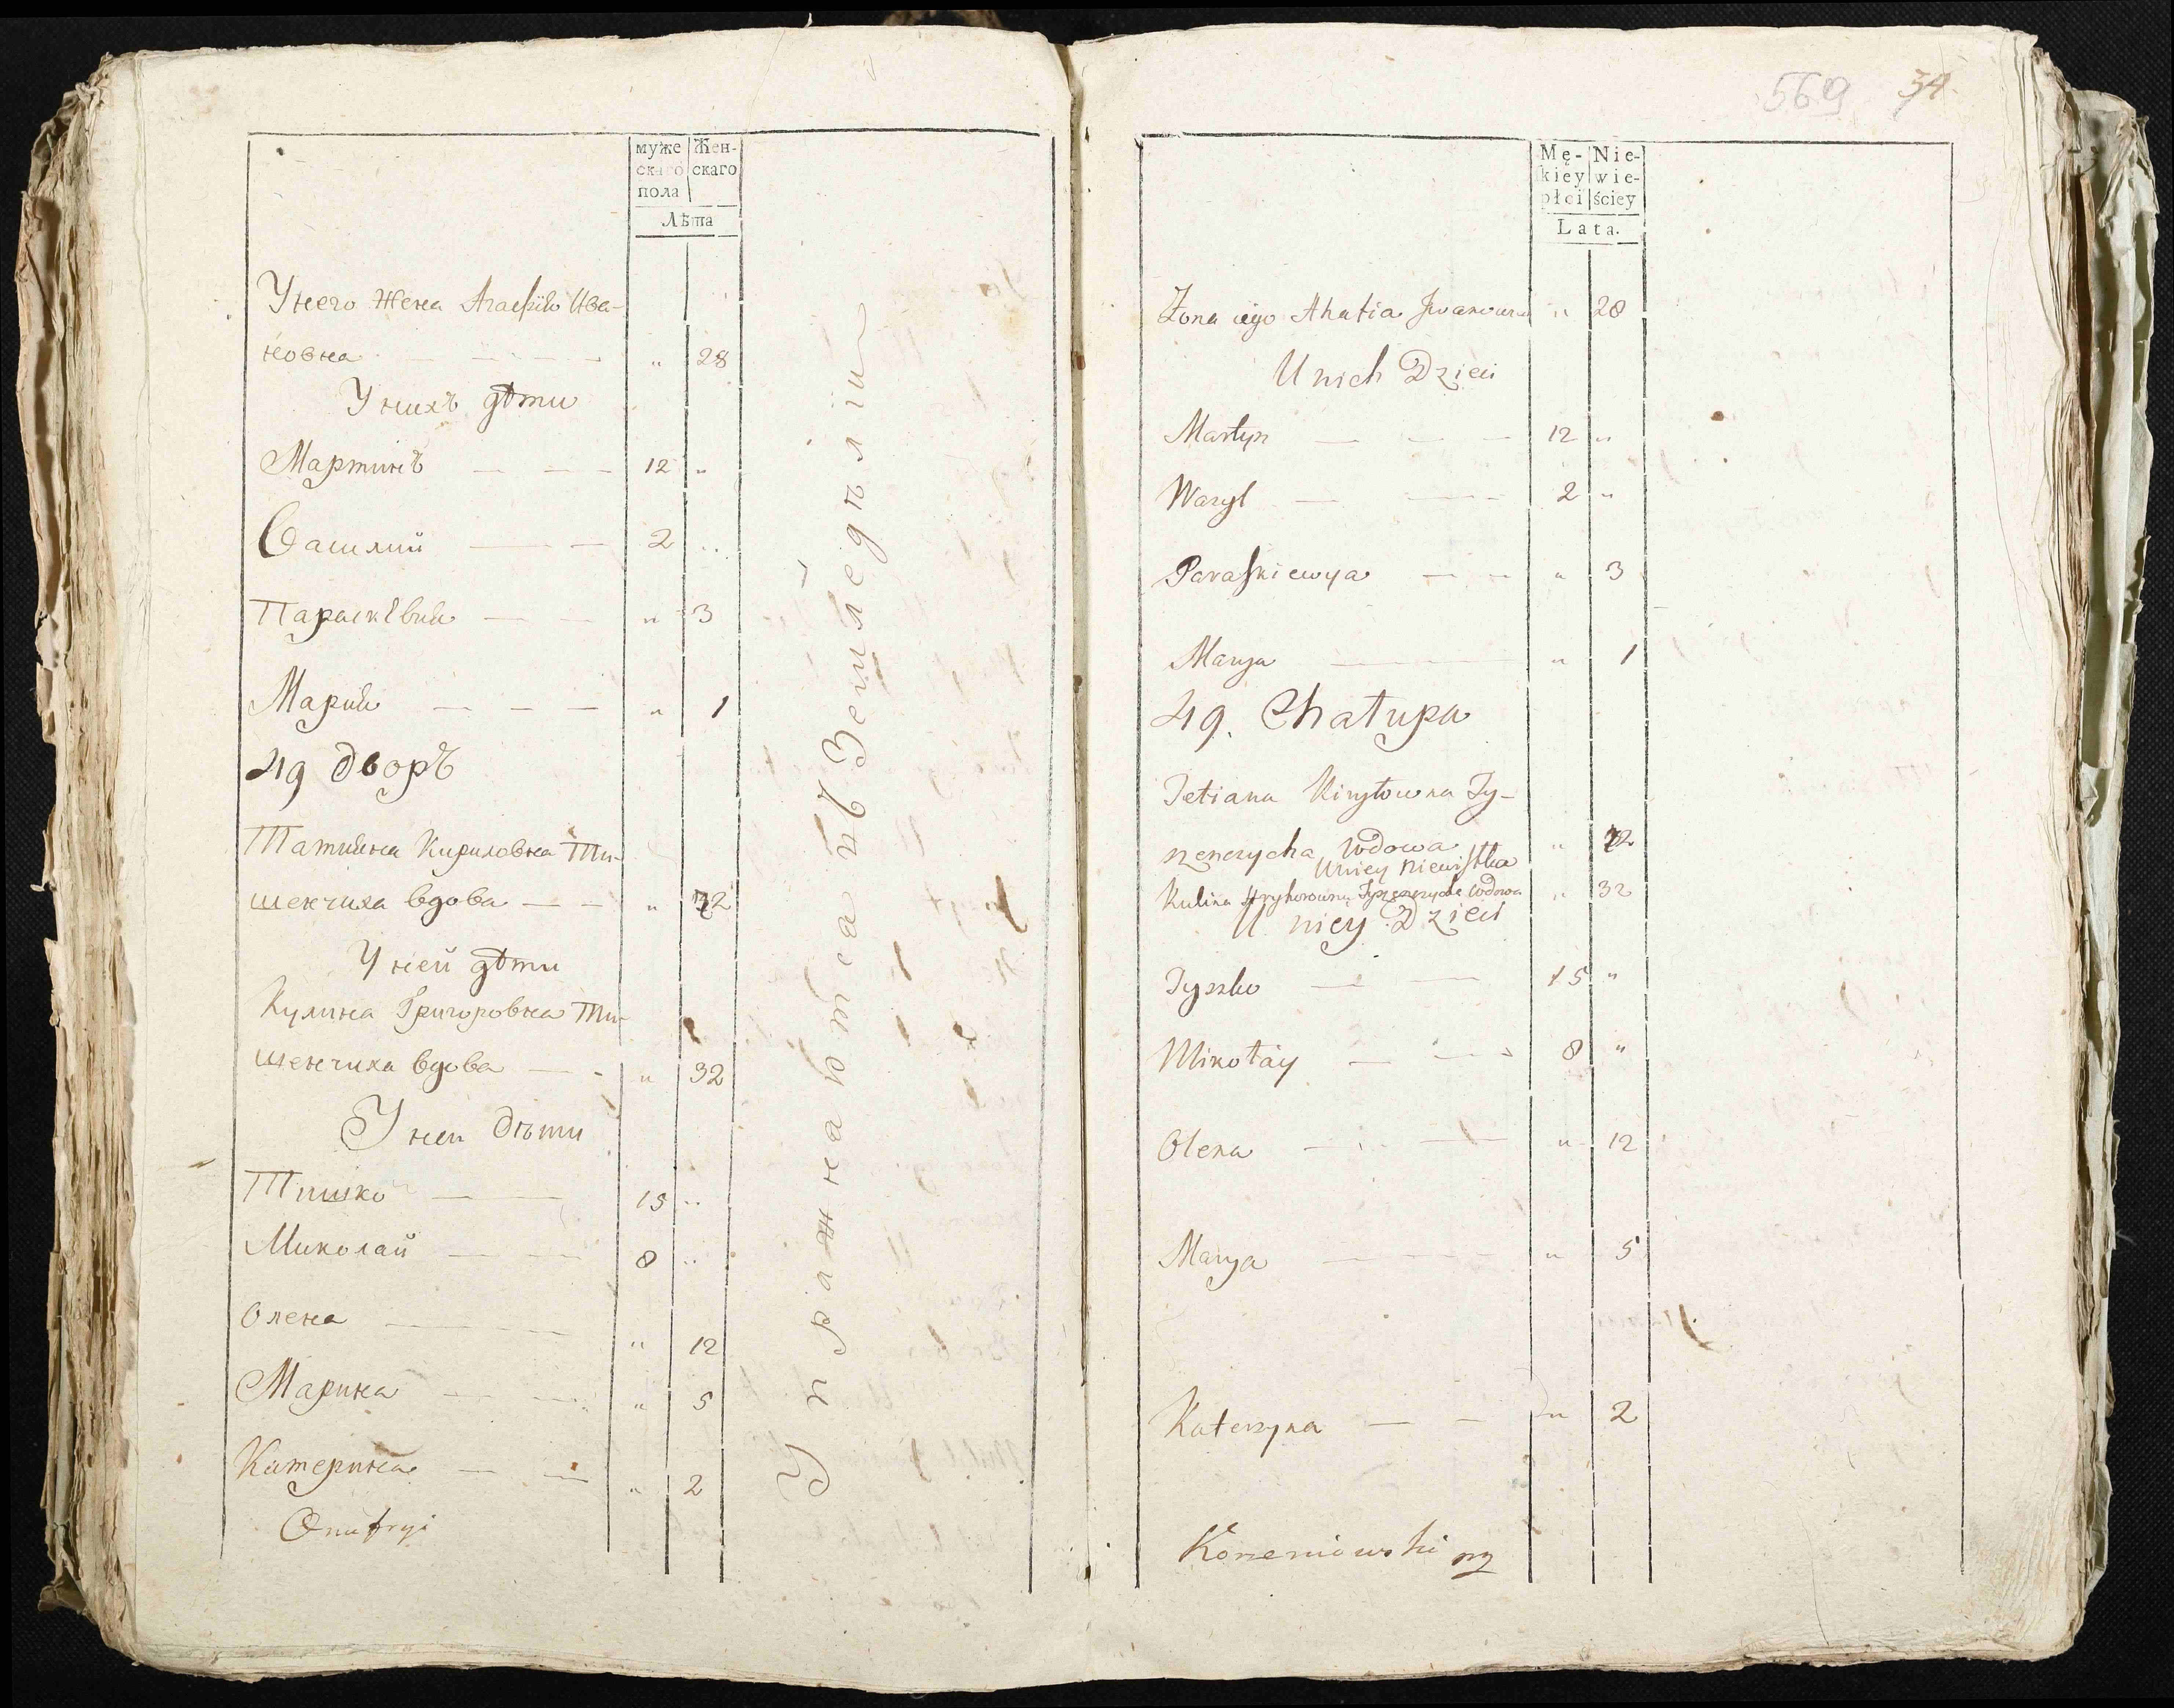 муже
скаго
пола
Жен-
скаго
Лѣта
У него жена Агафія Ива-
новна " 28
У нихъ дѣти
Мартинъ 12 "
Василий 2 "
Параскѣвия " 3
Мария " 1
49 дворъ
Татияна Кириловна Ти-
шенчиха вдова " 72
У ней дѣти
Кулина Григоровна Ти-
шенчиха вдова " 32
У ней дѣти
Тишко 15 "
Миколай 8 "
Олена " 12
Марина " 5
Катерина " 2
Onufryi
Упражняются въ Земледѣліи
569 34
Mę-
kiey
płci
Nie-
wie-
ściey
Lata.
Żona iego Ahafia Iwanowna " 28
U nich Dzieci
Martyn 12 "
Wasyl 2 "
Paraskiewya " 3
Marya " 1
49. Chałupa
Tetiana Kiryłowna Ty-
szenczycha Wdowa " 72
U niey Niewistka
Kulina Hryhorowna Tyszenczycha Wdowa " 32
U niey Dzieci
Tyszko 15 "
Mikołay 8 "
Olena " 12
Marya " 5
Katerzyna " 2
Korzeniowski